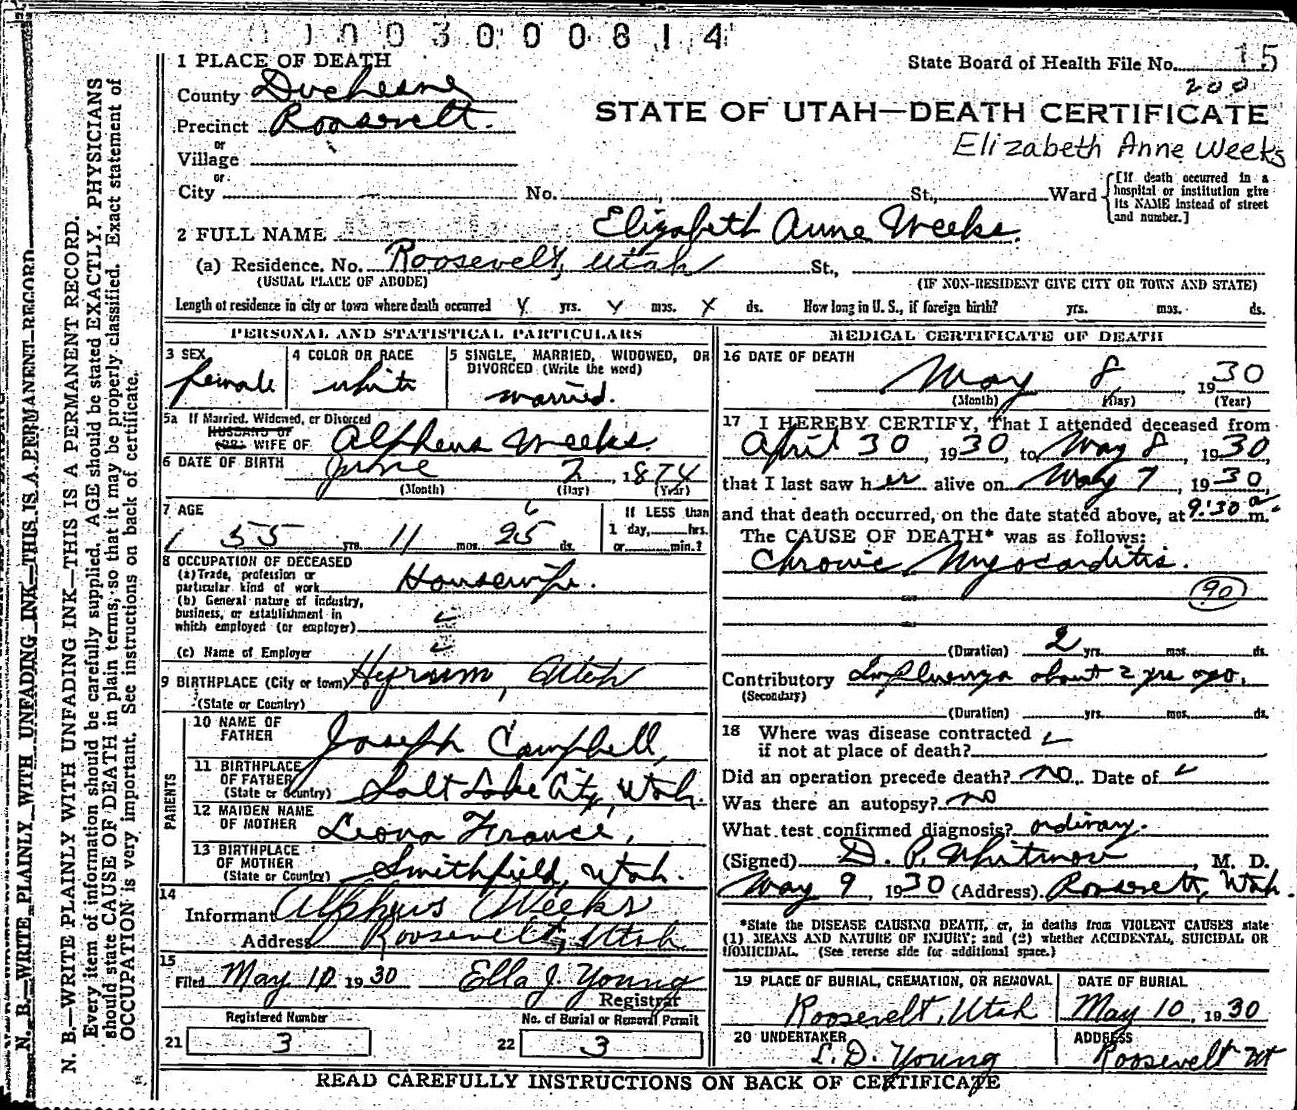 0 1 0 0 3 0 0 0 8 1 4
1 PLACE OF DEATH
State Board of Health File No. 15
200
County Duchesne
STATE OF UTAH—DEATH CERTIFICATE
Precinct Roosevelt.
Elizabeth Anne Weeks
or
Village
or
City No. , St., Ward
[If death occurred in a hospital or institution give its NAME instead of street and number.]
2 FULL NAME Elizabeth Anne Weeks.
(a) Residence. No. Roosevelt, Utah St.,
(USUAL PLACE OF ABODE) (IF NON-RESIDENT GIVE CITY OR TOWN AND STATE)
Length of residence in city or town where death occurred yrs. mos. ds. How long in U. S., if foreign birth? yrs. mos. ds.
PERSONAL AND STATISTICAL PARTICULARS
3 SEX female
4 COLOR OR RACE white
5 SINGLE, MARRIED, WIDOWED, OR DIVORCED (Write the word) married.
5a If Married, Widowed, or Divorced
HUSBAND OF
(or) WIFE OF Alpheus Weeks.
6 DATE OF BIRTH June 2, 1874
(Month) (Day) (Year)
7 AGE 55 yrs. 11 mos. 25 6 ds.
If LESS than
1 day, hrs.
or min.?
8 OCCUPATION OF DECEASED
(a) Trade, profession or
particular kind of work Housewife.
(b) General nature of industry,
business, or establishment in
which employed (or employer)
(c) Name of Employer
9 BIRTHPLACE (City or town) Hyrum, Utah
(State or Country)
PARENTS
10 NAME OF FATHER Joseph Campbell,
11 BIRTHPLACE OF FATHER (State or Country) Salt Lake City, Utah.
12 MAIDEN NAME OF MOTHER Leona France,
13 BIRTHPLACE OF MOTHER (State or Country) Smithfield, Utah.
14
Informant Alpheus Weeks
Address Roosevelt, Utah
15
Filed May 10 1930 Ella J. Young
Registrar
Registered Number
No. of Burial or Removal Permit
21 3
22 3
MEDICAL CERTIFICATE OF DEATH
16 DATE OF DEATH
May 8, 1930
(Month) (Day) (Year)
17 I HEREBY CERTIFY, That I attended deceased from
April 30, 1930, to May 8, 1930,
that I last saw her alive on May 7, 1930,
and that death occurred, on the date stated above, at 9:30 a m.
The CAUSE OF DEATH* was as follows:
Chronic Myocarditis.
90
(Duration) 2 yrs. mos. ds.
Contributory Influenza about 2 yrs ago.
(Secondary)
(Duration) yrs. mos. ds.
18 Where was disease contracted
if not at place of death?
Did an operation precede death? no. Date of
Was there an autopsy? no
What test confirmed diagnosis? ordinary.
(Signed) D. P. Whitmore, M. D.
May 9, 1930 (Address) Roosevelt, Utah.
*State the DISEASE CAUSING DEATH, or, in deaths from VIOLENT CAUSES state
(1) MEANS AND NATURE OF INJURY; and (2) whether ACCIDENTAL, SUICIDAL OR
HOMICIDAL. (See reverse side for additional space.)
19 PLACE OF BURIAL, CREMATION, OR REMOVAL
Roosevelt, Utah
DATE OF BURIAL
May 10, 1930
20 UNDERTAKER
L. D. Young
ADDRESS
Roosevelt Ut
READ CAREFULLY INSTRUCTIONS ON BACK OF CERTIFICATE
N. B.—WRITE PLAINLY WITH UNFADING INK—THIS IS A PERMANENT RECORD
N. B.—WRITE PLAINLY WITH UNFADING INK—THIS IS A PERMANENT RECORD.
Every item of information should be carefully supplied. AGE should be stated EXACTLY. PHYSICIANS
should state CAUSE OF DEATH in plain terms, so that it may be properly classified. Exact statement of
OCCUPATION is very important. See instructions on back of certificate.